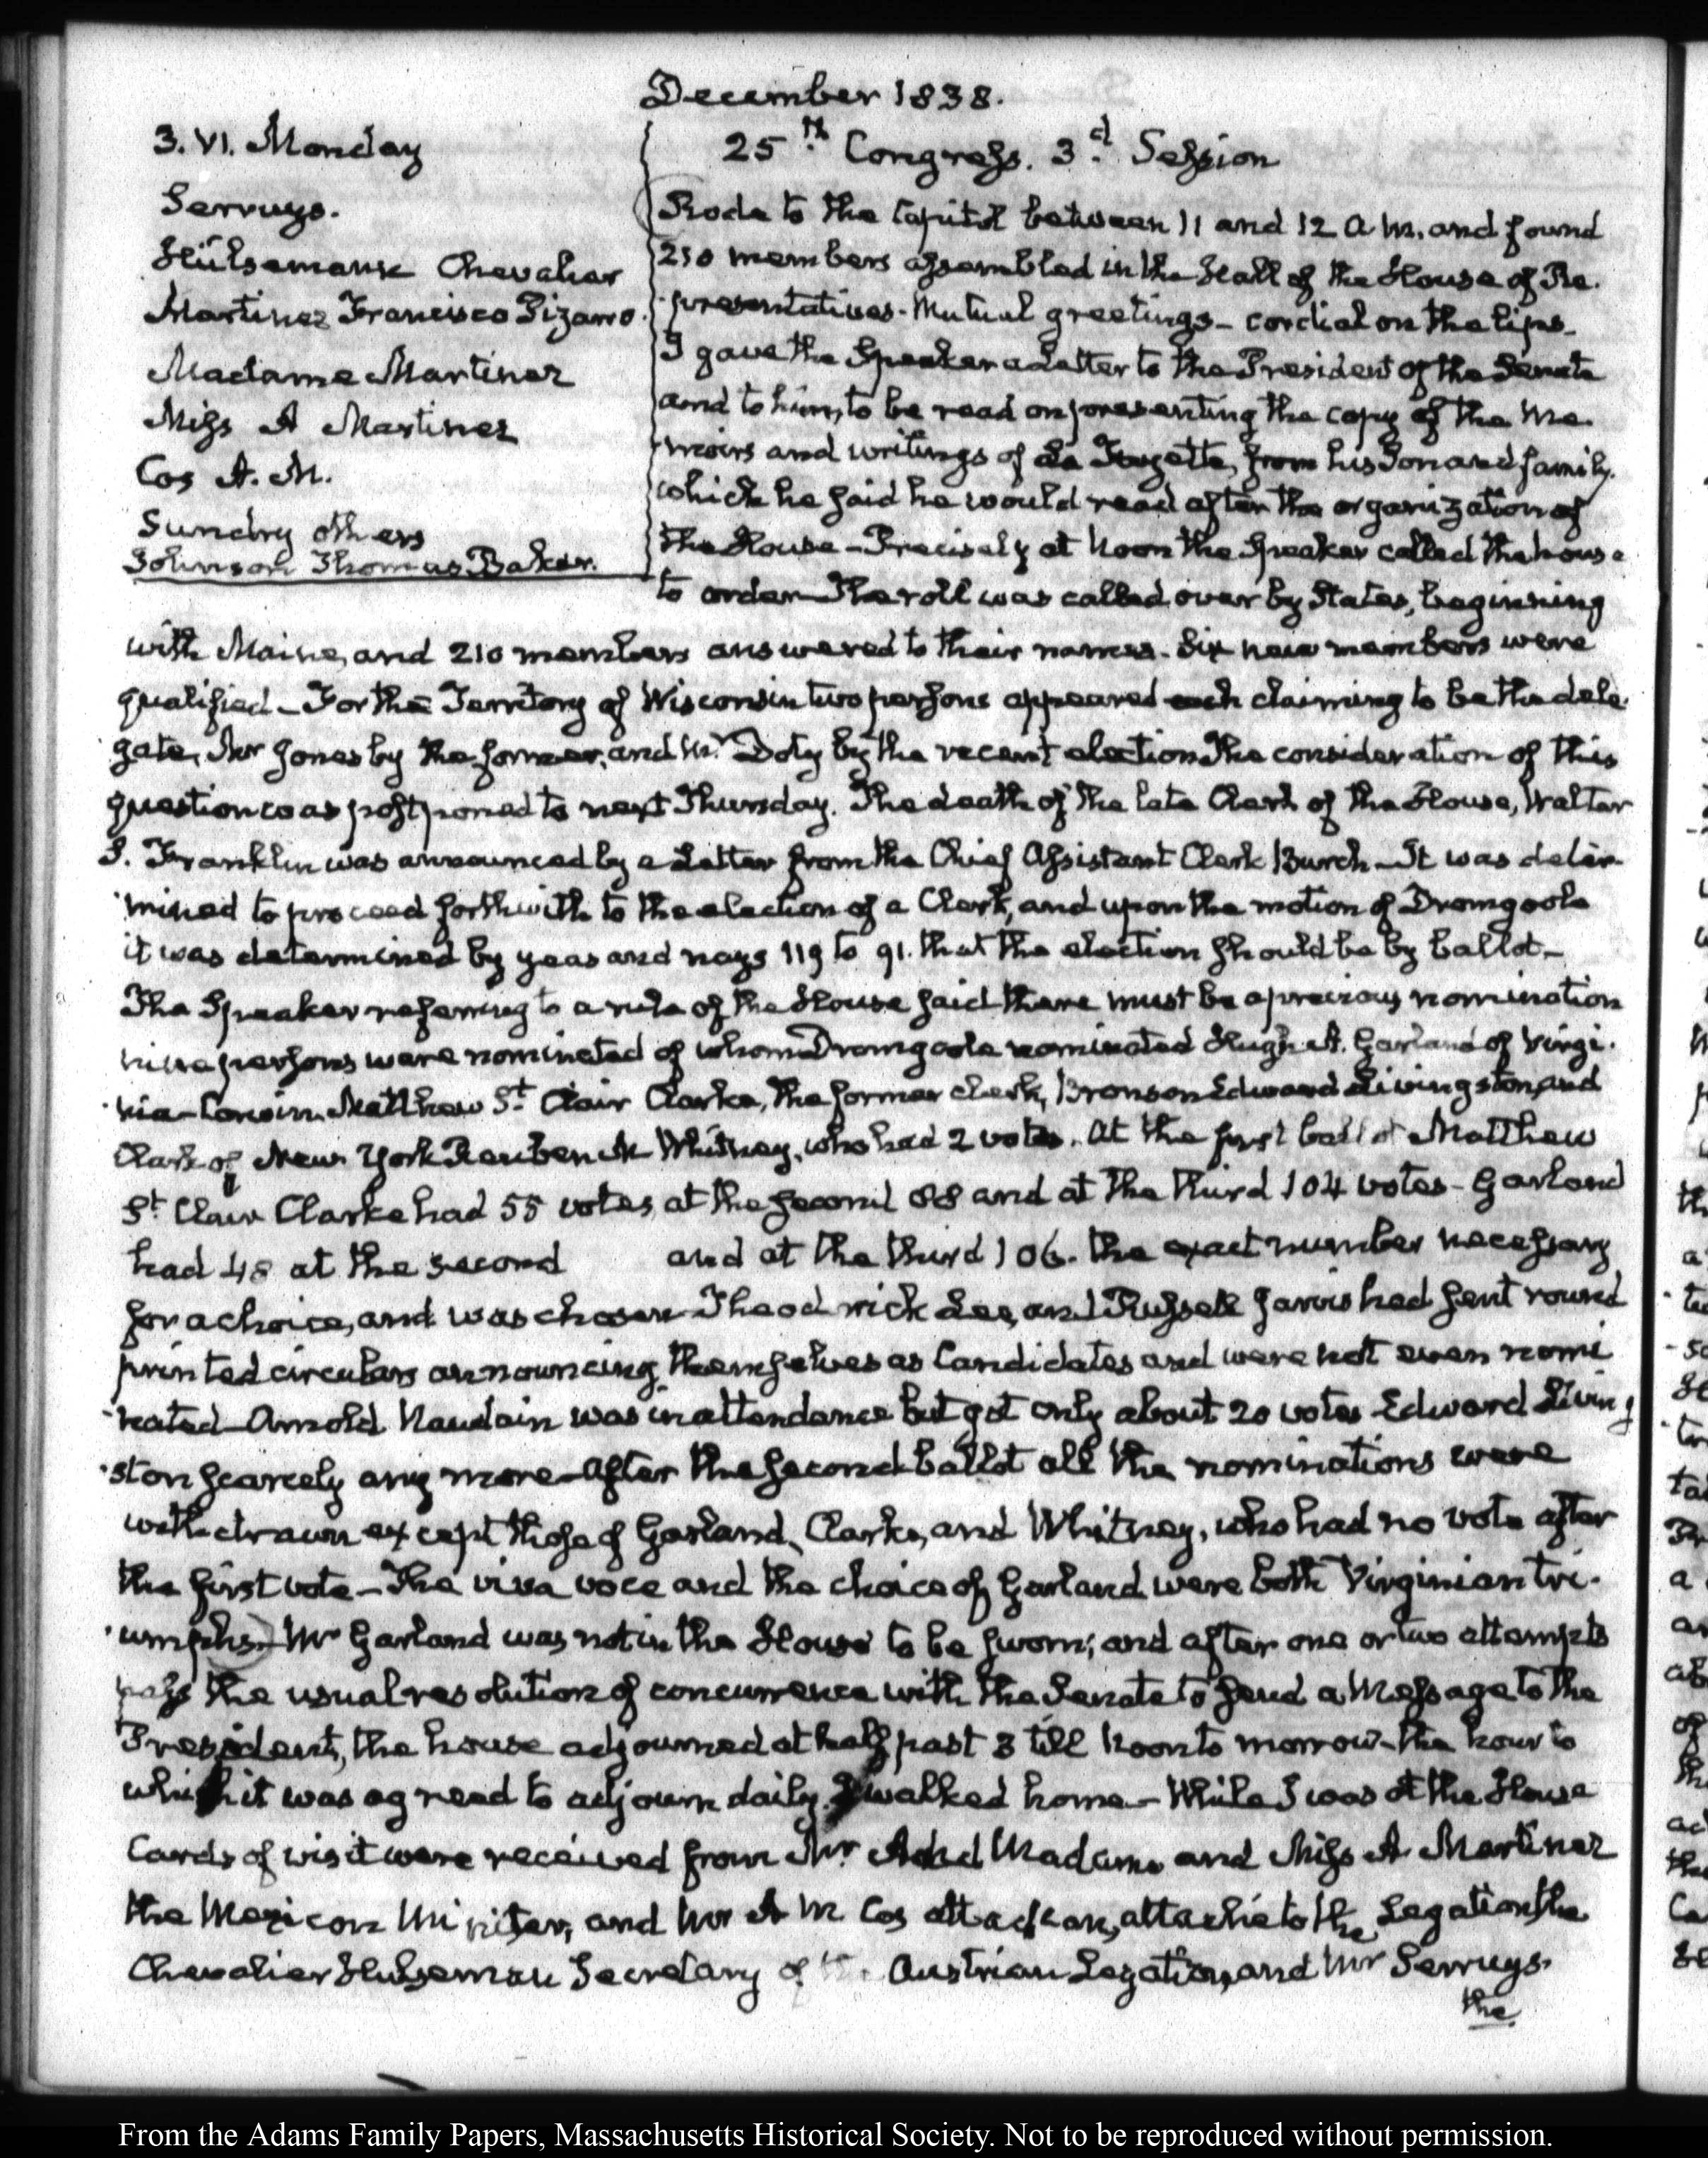 December 1838.
3. VI. Monday
Serruys.
Hülsemann Chevalier
Martinez Francisco Pizarro.
Madame Martinez
Miss A Martinez
Cos A. M.
Sundry others
Johnson Thomas Baker.
25th Congress. 3d Session
Rode to the Capitol between 11 and 12 A.M. and found
210 members assembled in the Hall of the House of Re-
presentatives. Mutual greetings – cordial on the lips.
I gave the Speaker a Letter to the President of the Senate
and to him, to be read on presenting the copy of the Me-
moirs and writings of La Fayette, from his Son and family.
which he said he would read after the organization of
the House – Precisely at Noon the Speaker called the house
to order – The roll was called over by States, beginning
with Maine, and 210 members answered to their names. Six new members were
qualified – For the Territory of Wisconsin two persons appeared each claiming to be the dele-
gate, Mr Jones by the former, and Mr Doty by the recent election The consideration of this
question was postponed to next Thursday. The death of the late Clerk of the House, Walter
S. Franklin was announced by a Letter from the Chief Assistant Clerk Burch – It was deter-
mined to proceed forthwith to the election of a Clerk, and upon the motion of Dromgoole
it was determined by yeas and nays 119 to 91. that the election should be by ballot –
The Speaker referring to a rule of the House said there must be a previous nomination
nine persons were nominated of whom Dromgoole nominated Hugh A. Garland of Virgi-
nia – Corwin. Matthew St Clair Clarke, the former clerk, Bronson Edward Livingston, and
Clark of New York Reuben M Whitney, who had 2 votes. At the first ballot Matthew
St Clair Clarke had 55 votes, at the second 88 and at the third 104 votes – Garland
had 48 at the second and at the third 106. the exact number necessary
for a choice, and was chosen Theodorick Lee, and Russell Jarvis had sent round
printed circulars announcing themselves as Candidates and were not even nomi
nated – Arnold Naudain was in attendance but got only about 20 votes Edward Living
ston scarcely any more – After the second ballot all the nominations were
withdrawn except those of Garland, Clarke, and Whitney, who had no vote after
the first vote – The viva voce and the choice of Garland were both Virginian tri-
umphs – Mr Garland was not in the House to be sworn; and after one or two attempts
pass the usual resolution of concurrence with the Senate to send a Message to the
President, the house adjourned at half past 3 till Noon to morrow – the hour to
which it was agreed to adjourn daily. I walked home – While I was at the House
Cards of visit were received from Mr And Madame and Miss A Martinez
the Mexican Minister, and Mr A M Cos attaché to the Legation, the
Chevalier Hulseman Secretary of the Austrian Legation, and Mr Serruys.
the
From the Adams Family Papers, Massachusetts Historical Society. Not to be reproduced without permission.